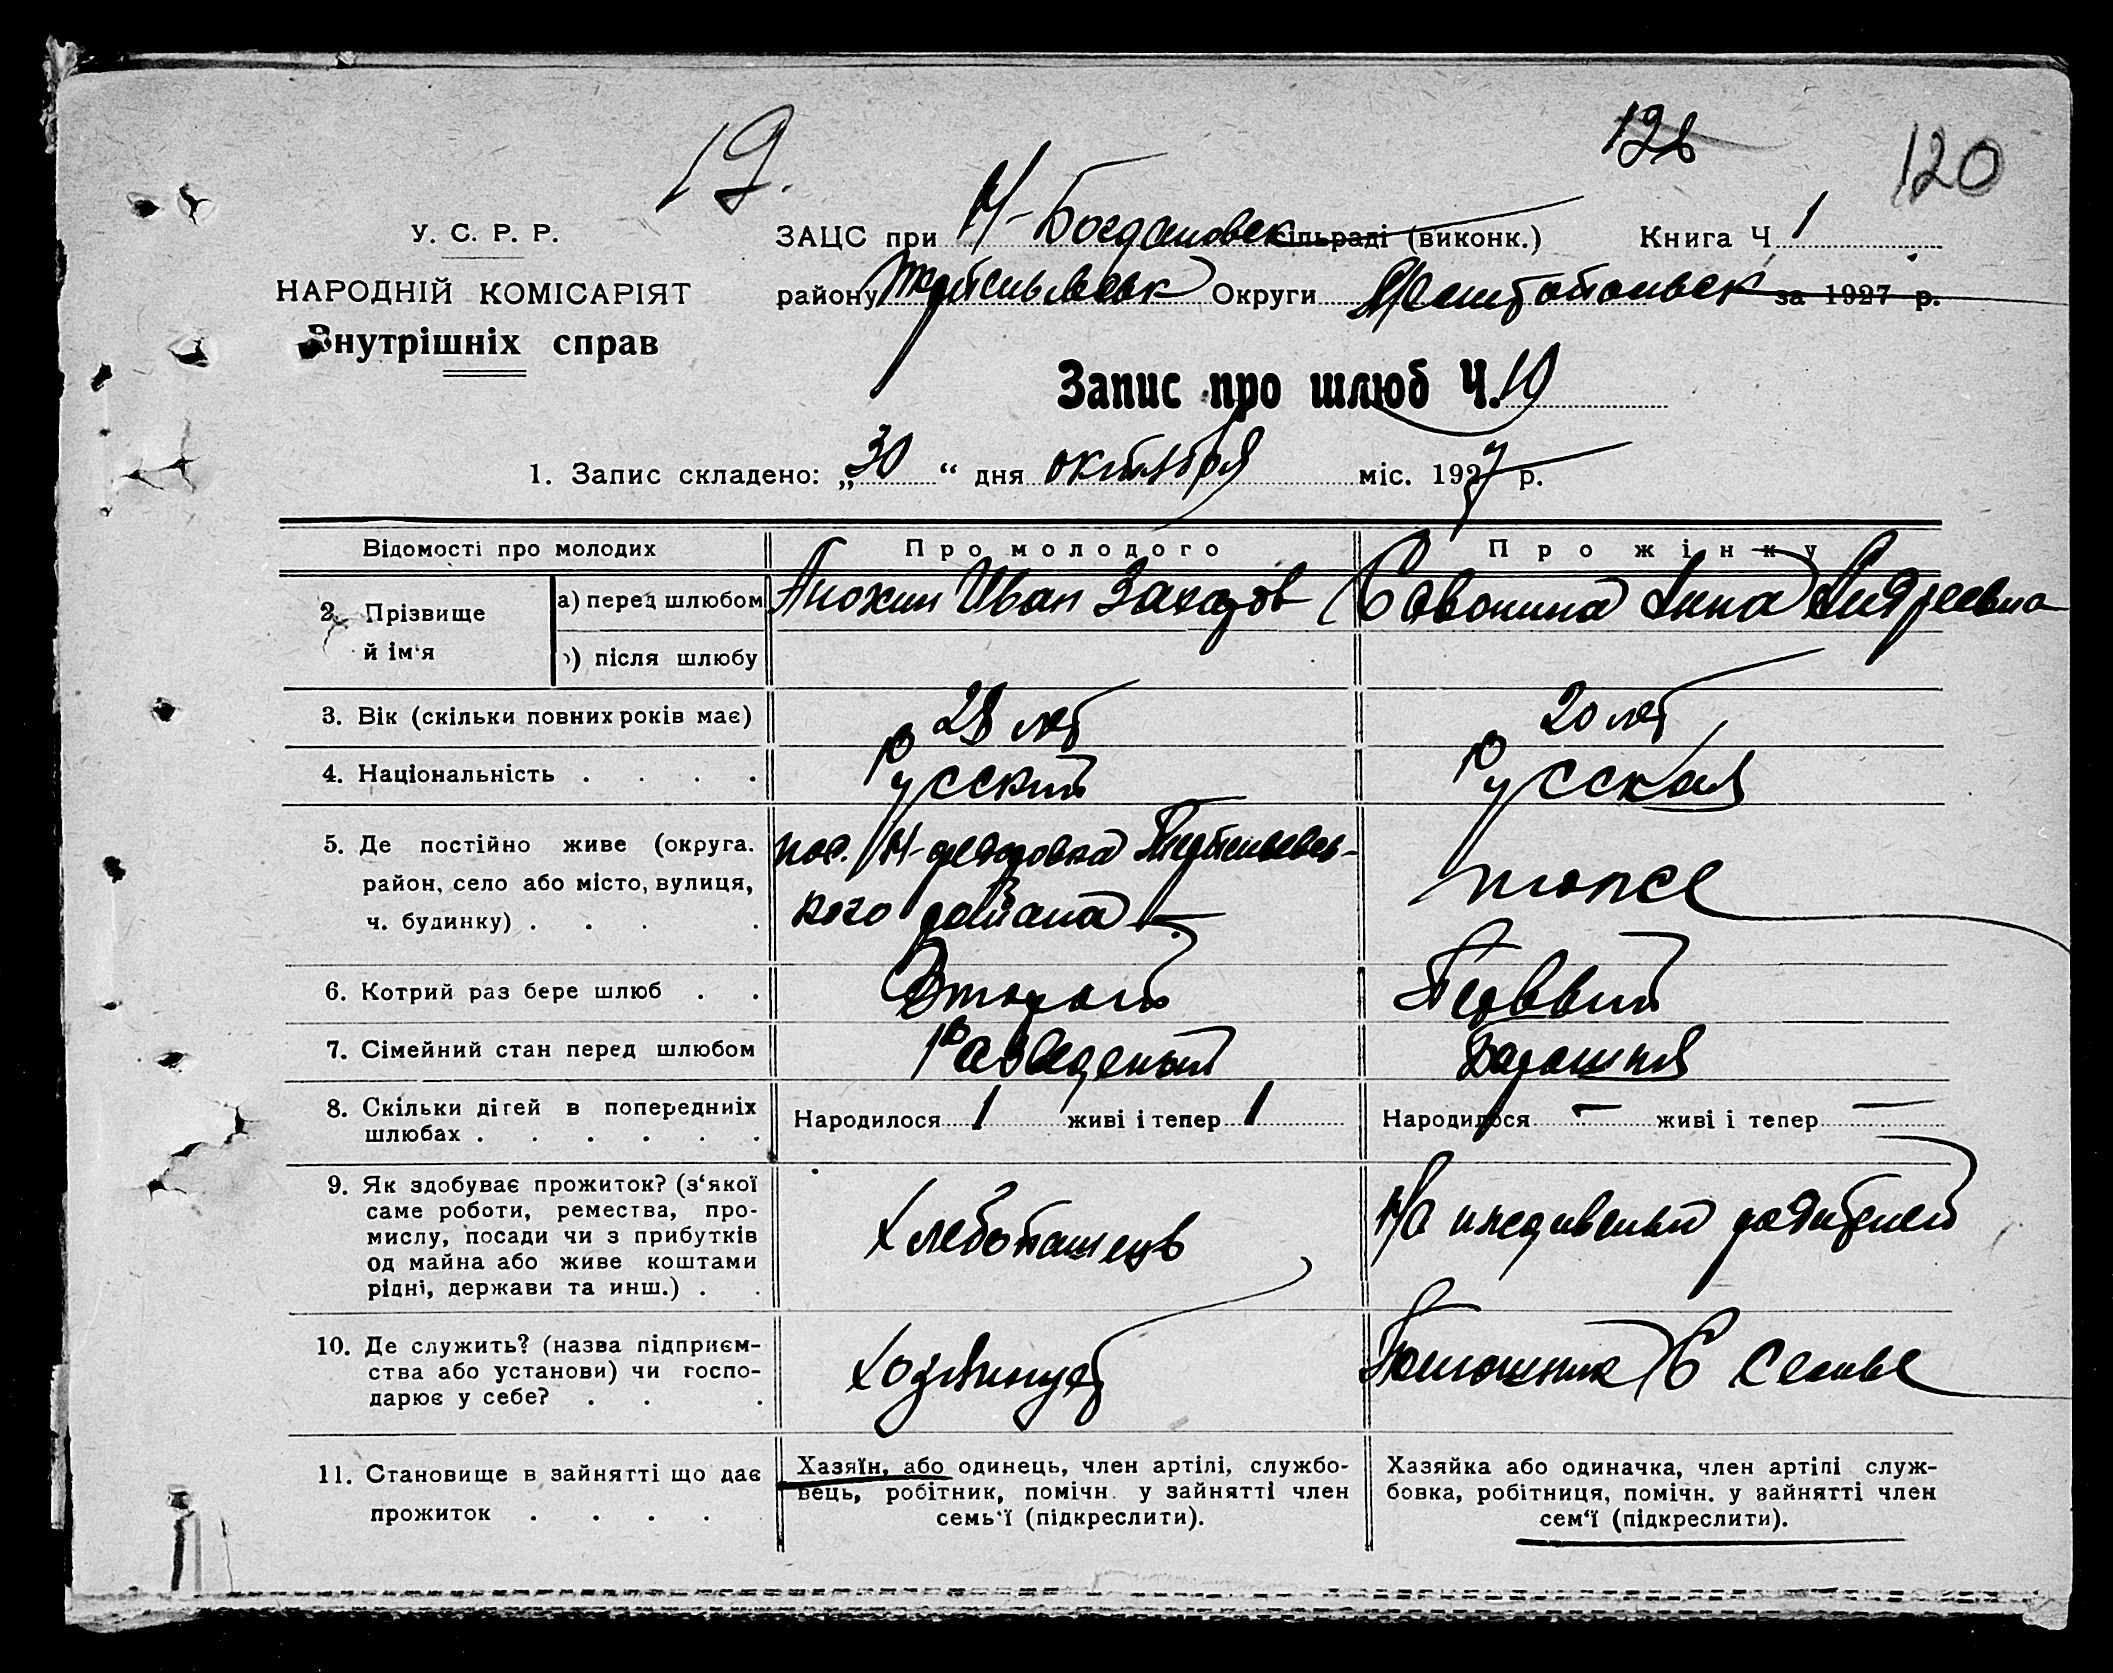 19.
126
120
У. С. Р. Р.
НАРОДНІЙ КОМІСАРІЯТ
Внутрішніх справ
ЗАЦС при Н-Богдановск сільраді (виконк.) Книга Ч 1
району Округи за 1927 р.
Запис про шлюб Ч. 10
1. Запис складено: „30“ дня октября міс. 1927 р.
Відомості про молодих Про молодого Про жінку
2. Прізвище й ім‘я
а) перед шлюбом Анохин Иван Захаров Савонина Анна Андреевна
б) після шлюбу
3. Вік (скільки повних років має) 28 лет 20 лет
4. Національність . . . . Русский Русская
5. Де постійно живе (округа.
район, село або місто, вулиця,
ч. будинку) . . . .
пос. Н-федоровка
кого района –
тоже
6. Котрий раз бере шлюб . . Второй Первый
7. Сімейний стан перед шлюбом Разведеный Барышня
8. Скільки дітей в попередниіх
шлюбах . . . . . .
Народилося 1 живі і тепер 1 Народилося – живі і тепер –
9. Як здобуває прожиток? (з‘якої
саме роботи, ремества, про-
мислу, посади чи з прибутків
од майна або живе коштами
рідні, держави та инш.) . .
Хлебопашець
На иждивеньи родителей
10. Де служить? (назва підприєм-
ства або установи) чи госпо-
дарює у себе? . . .
Хозяинует
Помощник В семье
11. Становище в зайнятті що дає
прожиток . . . .
Хазяїн, або одинець, член артілі, службо-
вець, робітник, помічн. у зайнятті член
семь‘ї (підкреслити).
Хазяйка або одиначка, член артілі служ-
бовка, робітниця, помічн. у зайнятті член
сем‘ї (підкреслити).